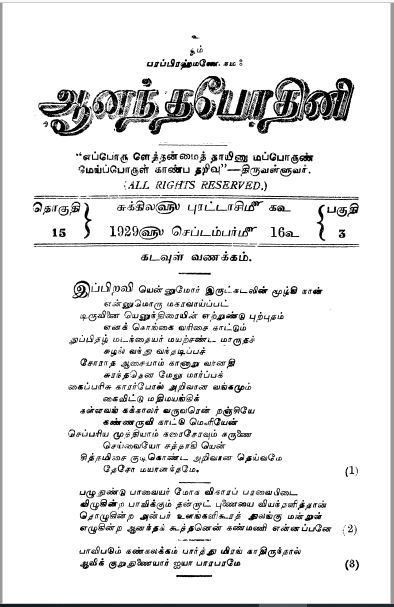 உ
ஓம்
பரப்பிரஹ்மணே நமஃ
ஆனந்தபோதினி
“எப்பொரு ளெத்தன்மைத் தாயினு மப்பொருண்
மெய்ப்பொருள் காண்ப தறிவு”—திருவள்ளுவர்.
(ALL RIGHTS RESERVED.)
தொகுதி 15 } சுக்கில௵ புரட்டாசி௴ க௳ { பகுதி 3
1929௵ செப்டம்பர்௴ 16௳
கடவுள் வணக்கம்.
இப்பிறவி யென்னுமோர் இருட்கடலின் மூழ்கி நான்
என்னுமொரு மகரவாய்ப்பட்
டிருவினை யெனுந்திரையின் எற்றுண்டு புற்புதம்
எனக் கொங்கை வரிசை காட்டும்
துப்பிதழ் மடந்தையர் மயற்சண்ட மாருதச்
சுழல் வந்து வந்தடிப்பச்
சோராத ஆசையாம் கானாறு வானதி
சுரந்ததென மேலு மார்ப்பக்
கைப்பரிசு காரர்போல் அறிவான வங்கமும்
கைவிட்டு மதிமயங்கிக்
கள்ளவங் கக்காலர் வருவரென் றஞ்சியே
கண்ணருவி காட்டு மெளியேன்
செப்பரிய முத்தியாம் கரைசேரவும் கருணை
செய்வையோ சத்தாகி யென்
சித்தமிசை குடிகொண்ட அறிவான தெய்வமே
தேசோ மயானந்தமே. (1)
பழுதுண்டு பாவையர் மோக விகாரப் பரவையிடை
விழுகின்ற பாவிக்கும் தன்றாட் புணையை வியந்தளித்தான்
தொழுகின்ற அன்பர் உளங்களிகூரத் துலங்கு மன்றுள்
எழுகின்ற ஆனந்தக் கூத்தனென் கண்மணி என்னப்பனே (2)
பாவிபடும் கண்கலக்கம் பார்த்து மிரங் காதிருந்தால்
ஆவிக் குறுதுணையார் ஐயா பராபரமே (3)